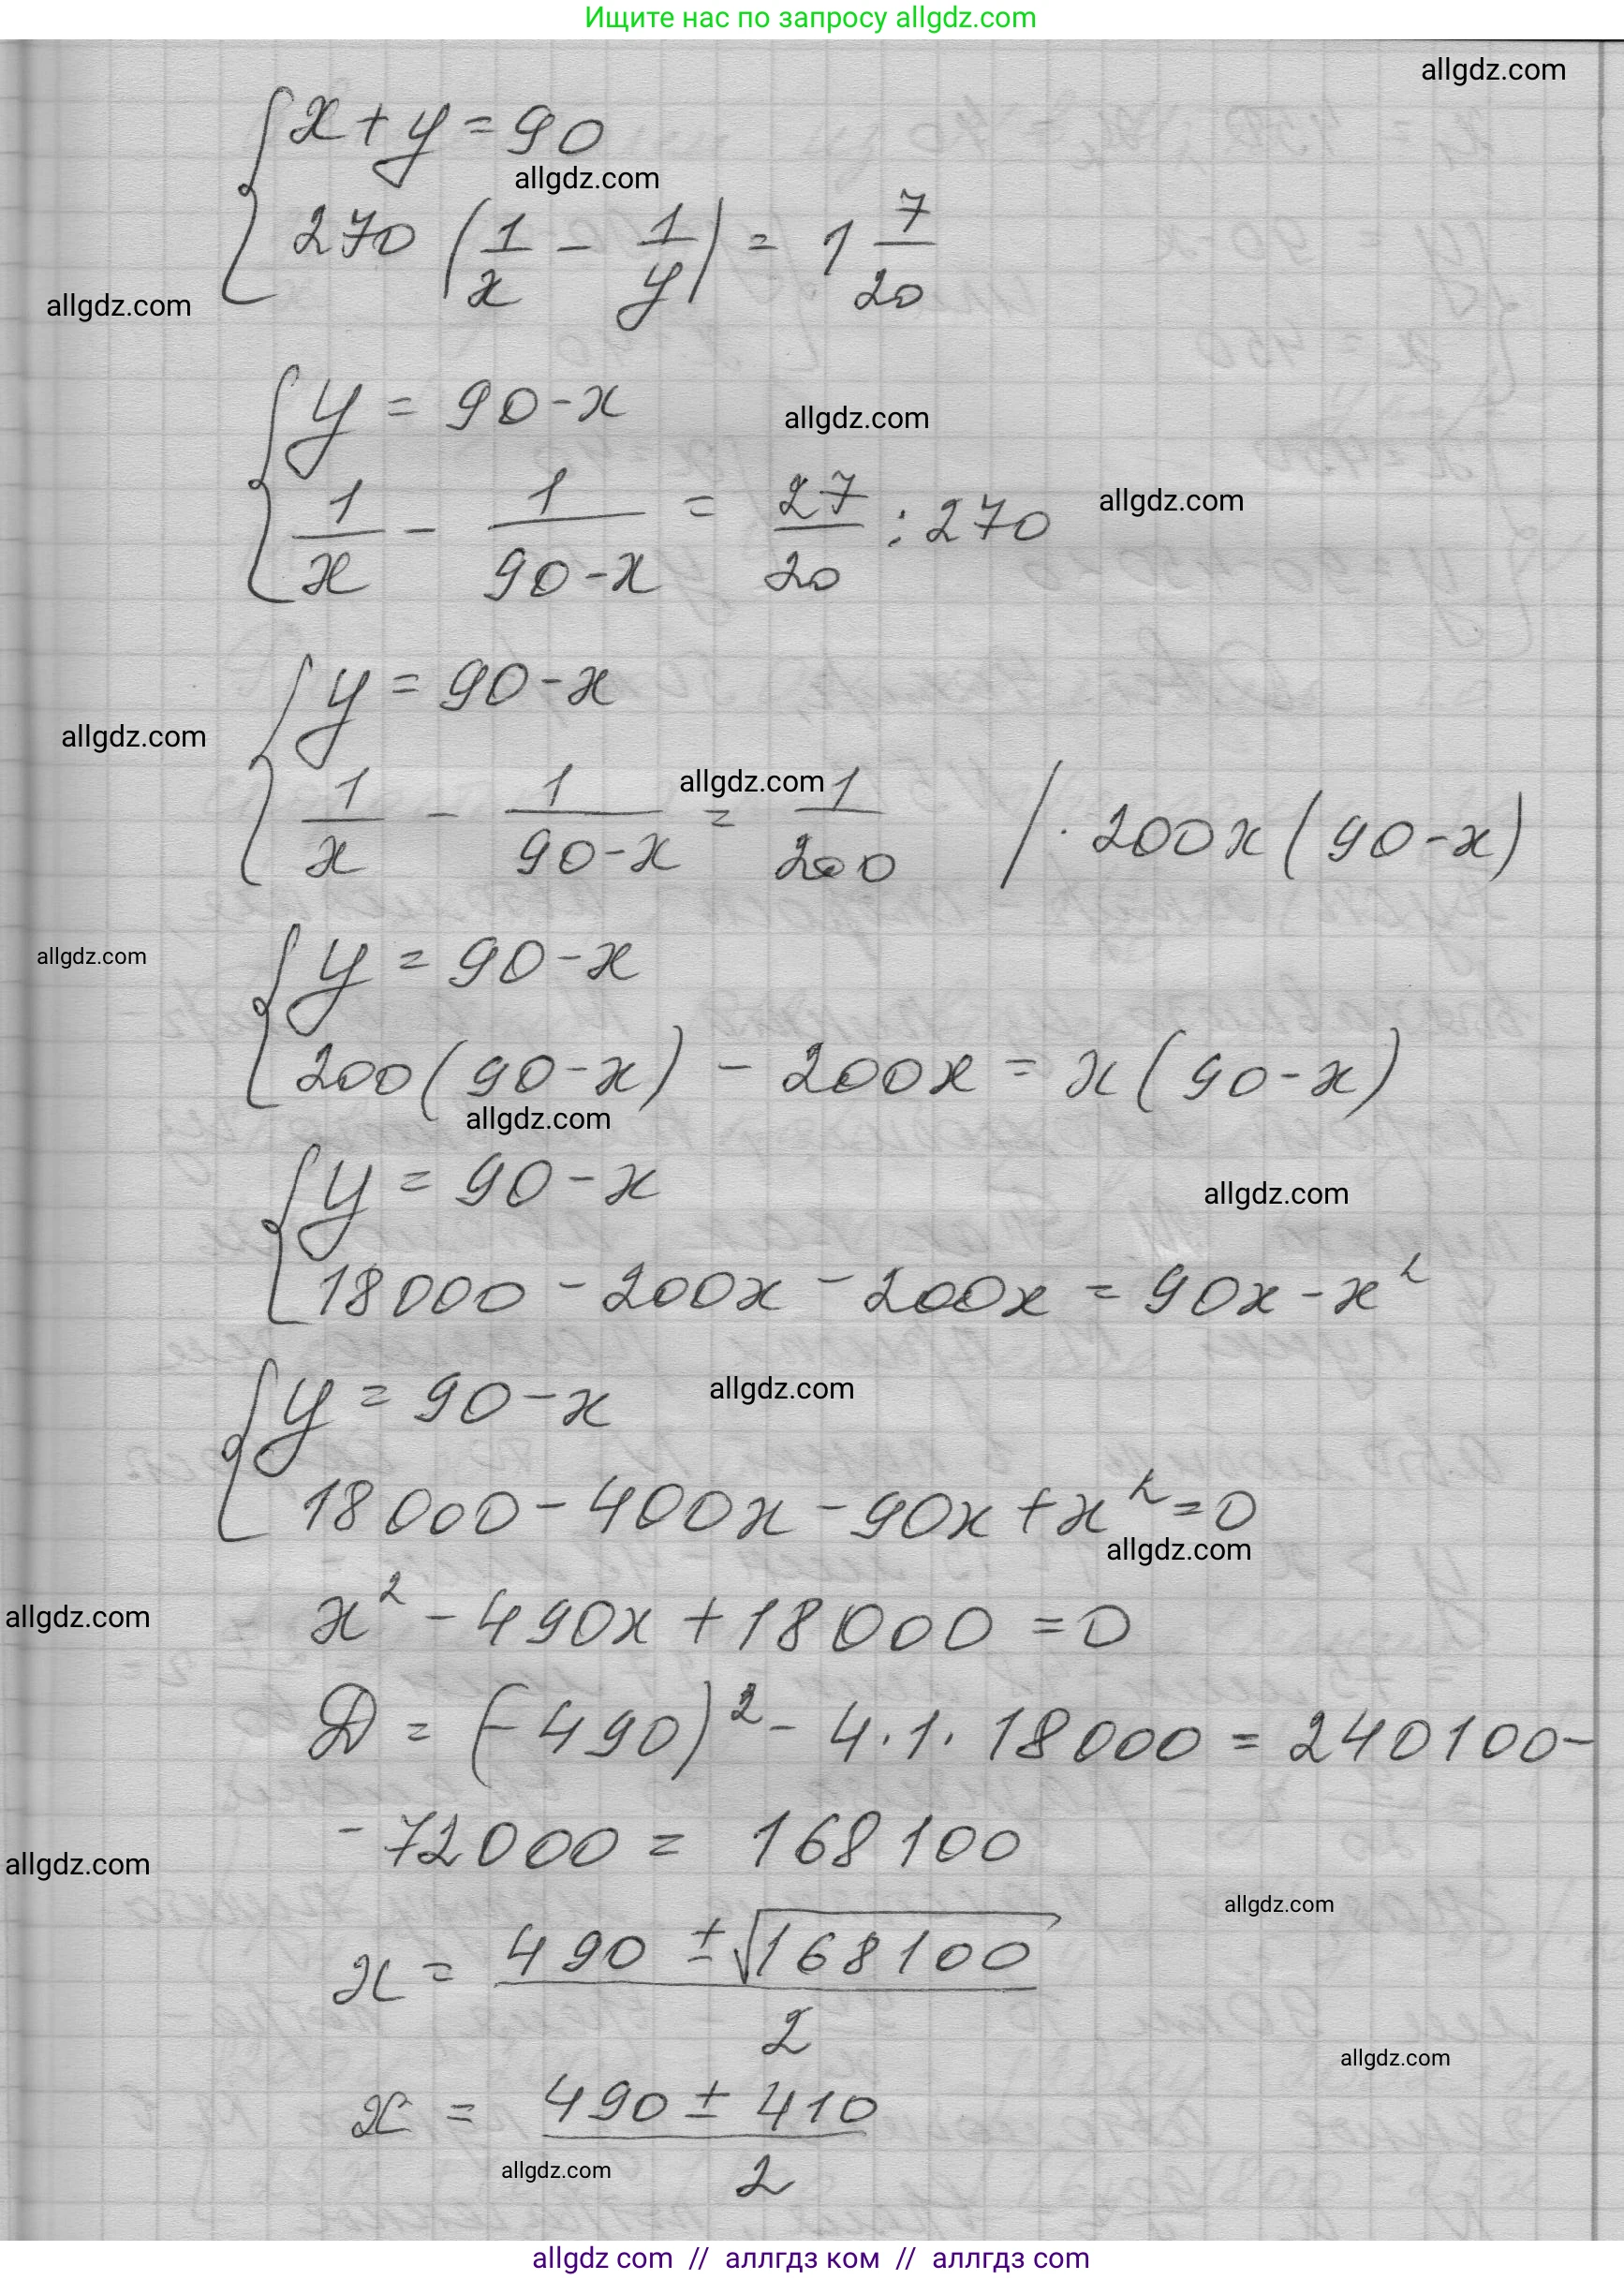 Ищите нас по запросу allgdz.com
allgdz.com
x + y = 90
allgdz.com
270 (1/x - 1/y) = 1 7/20
allgdz.com
y = 90 - x
allgdz.com
1/x - 1/(90 - x) = 27/20 : 270
allgdz.com
y = 90 - x
allgdz.com
allgdz.com
1/x - 1/(90 - x) = 1/200 / · 200x (90 - x)
allgdz.com
y = 90 - x
200(90 - x) - 200x = x(90 - x)
allgdz.com
y = 90 - x
allgdz.com
18000 - 200x - 200x = 90x - x²
y = 90 - x
allgdz.com
18000 - 400x - 90x + x² = 0
allgdz.com
x² - 490x + 18000 = 0
allgdz.com
D = (-490)² - 4·1·18000 = 240100 -
- 72000 = 168100
allgdz.com
allgdz.com
x = (490 ± √168100)/2
allgdz.com
x = (490 ± 410)/2
allgdz.com
allgdz com // аллгдз ком // аллгдз com